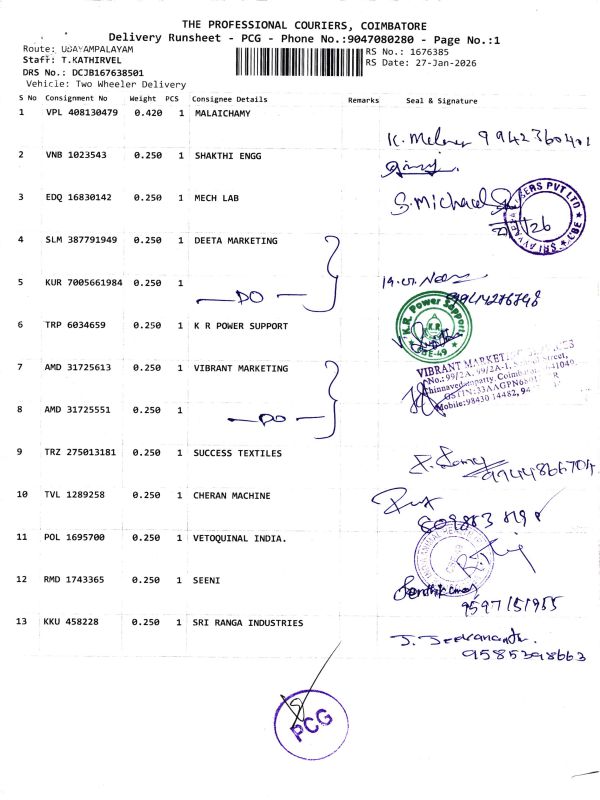 THE PROFESSIONAL COURIERS, COIMBATORE
Delivery Runsheet - PCG - Phone No.:9047080280 - Page No.:1
Route: UDAYAMPALAYAM
RS No.: 1676385
Staff: T.KATHIRVEL
RS Date: 27-Jan-2026
DRS No.: DCJB167638501
Vehicle: Two Wheeler Delivery
S No Consignment No Weight PCS Consignee Details Remarks Seal & Signature
1 VPL 408130479 0.420 1 MALAICHAMY
2 VNB 1023543 0.250 1 SHAKTHI ENGG
3 EDQ 16830142 0.250 1 MECH LAB
S. Michael
4 SLM 387791949 0.250 1 DEETA MARKETING
5 KUR 7005661984 0.250 1
DO
6 TRP 6034659 0.250 1 K R POWER SUPPORT
K.R. Power Support
7 AMD 31725613 0.250 1 VIBRANT MARKETING
VIBRANT MARKET
No.: 99/2A, 99/2A-1, Street,
Chinnavedampatty, Coimbatore 641049.
Mobile:98430 14482, 94
8 AMD 31725551 0.250 1
DO
9 TRZ 275013181 0.250 1 SUCCESS TEXTILES
10 TVL 1289258 0.250 1 CHERAN MACHINE
11 POL 1695700 0.250 1 VETOQUINAL INDIA.
12 RMD 1743365 0.250 1 SEENI
9597151955
13 KKU 458228 0.250 1 SRI RANGA INDUSTRIES
9585398663
PCG